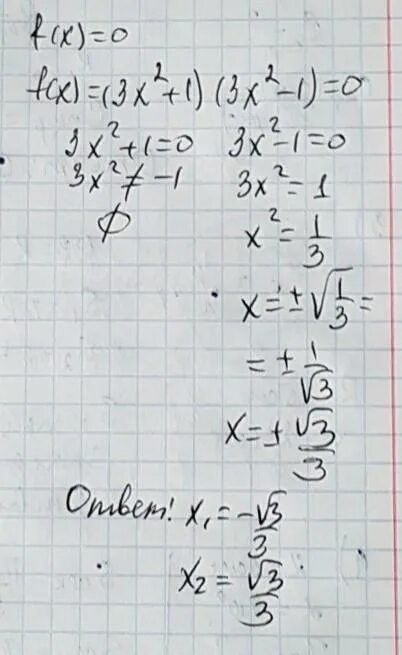 f(x)=0
f(x)=(3x²+1)(3x²-1)=0
3x²+1=0 3x²-1=0
3x²≠-1 3x²=1
∅ x²=1/3
x=±√(1/3)=
=±1/√3
x=±√3/3
Ответ! x₁=-√3/3
x₂=√3/3